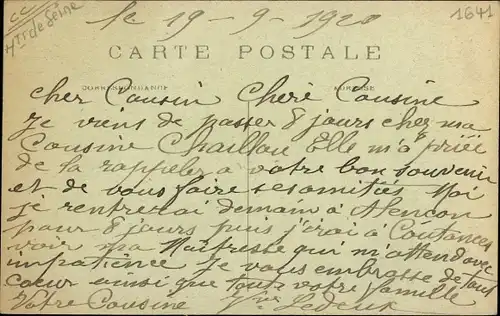 CC
Hts de Seine
le 19-9-1920
1641
CARTE POSTALE
CORRESPONDANCE
ADRESSE
cher Cousin Chère Cousine
Je viens de passer 8 jours chez ma
Cousine Chaillou Elle m'a priée
de la rappeler a votre bon souvenir
et de vous faire ses amitiés Moi
je rentrerai demain à Alençon
pour 8 jours puis j'irai à Coutances
voir ma Maitresse qui m'attend avec
impatience Je vous embrasse de tout
cœur ainsi que toute votre famille
Votre Cousine Vve Ledeux